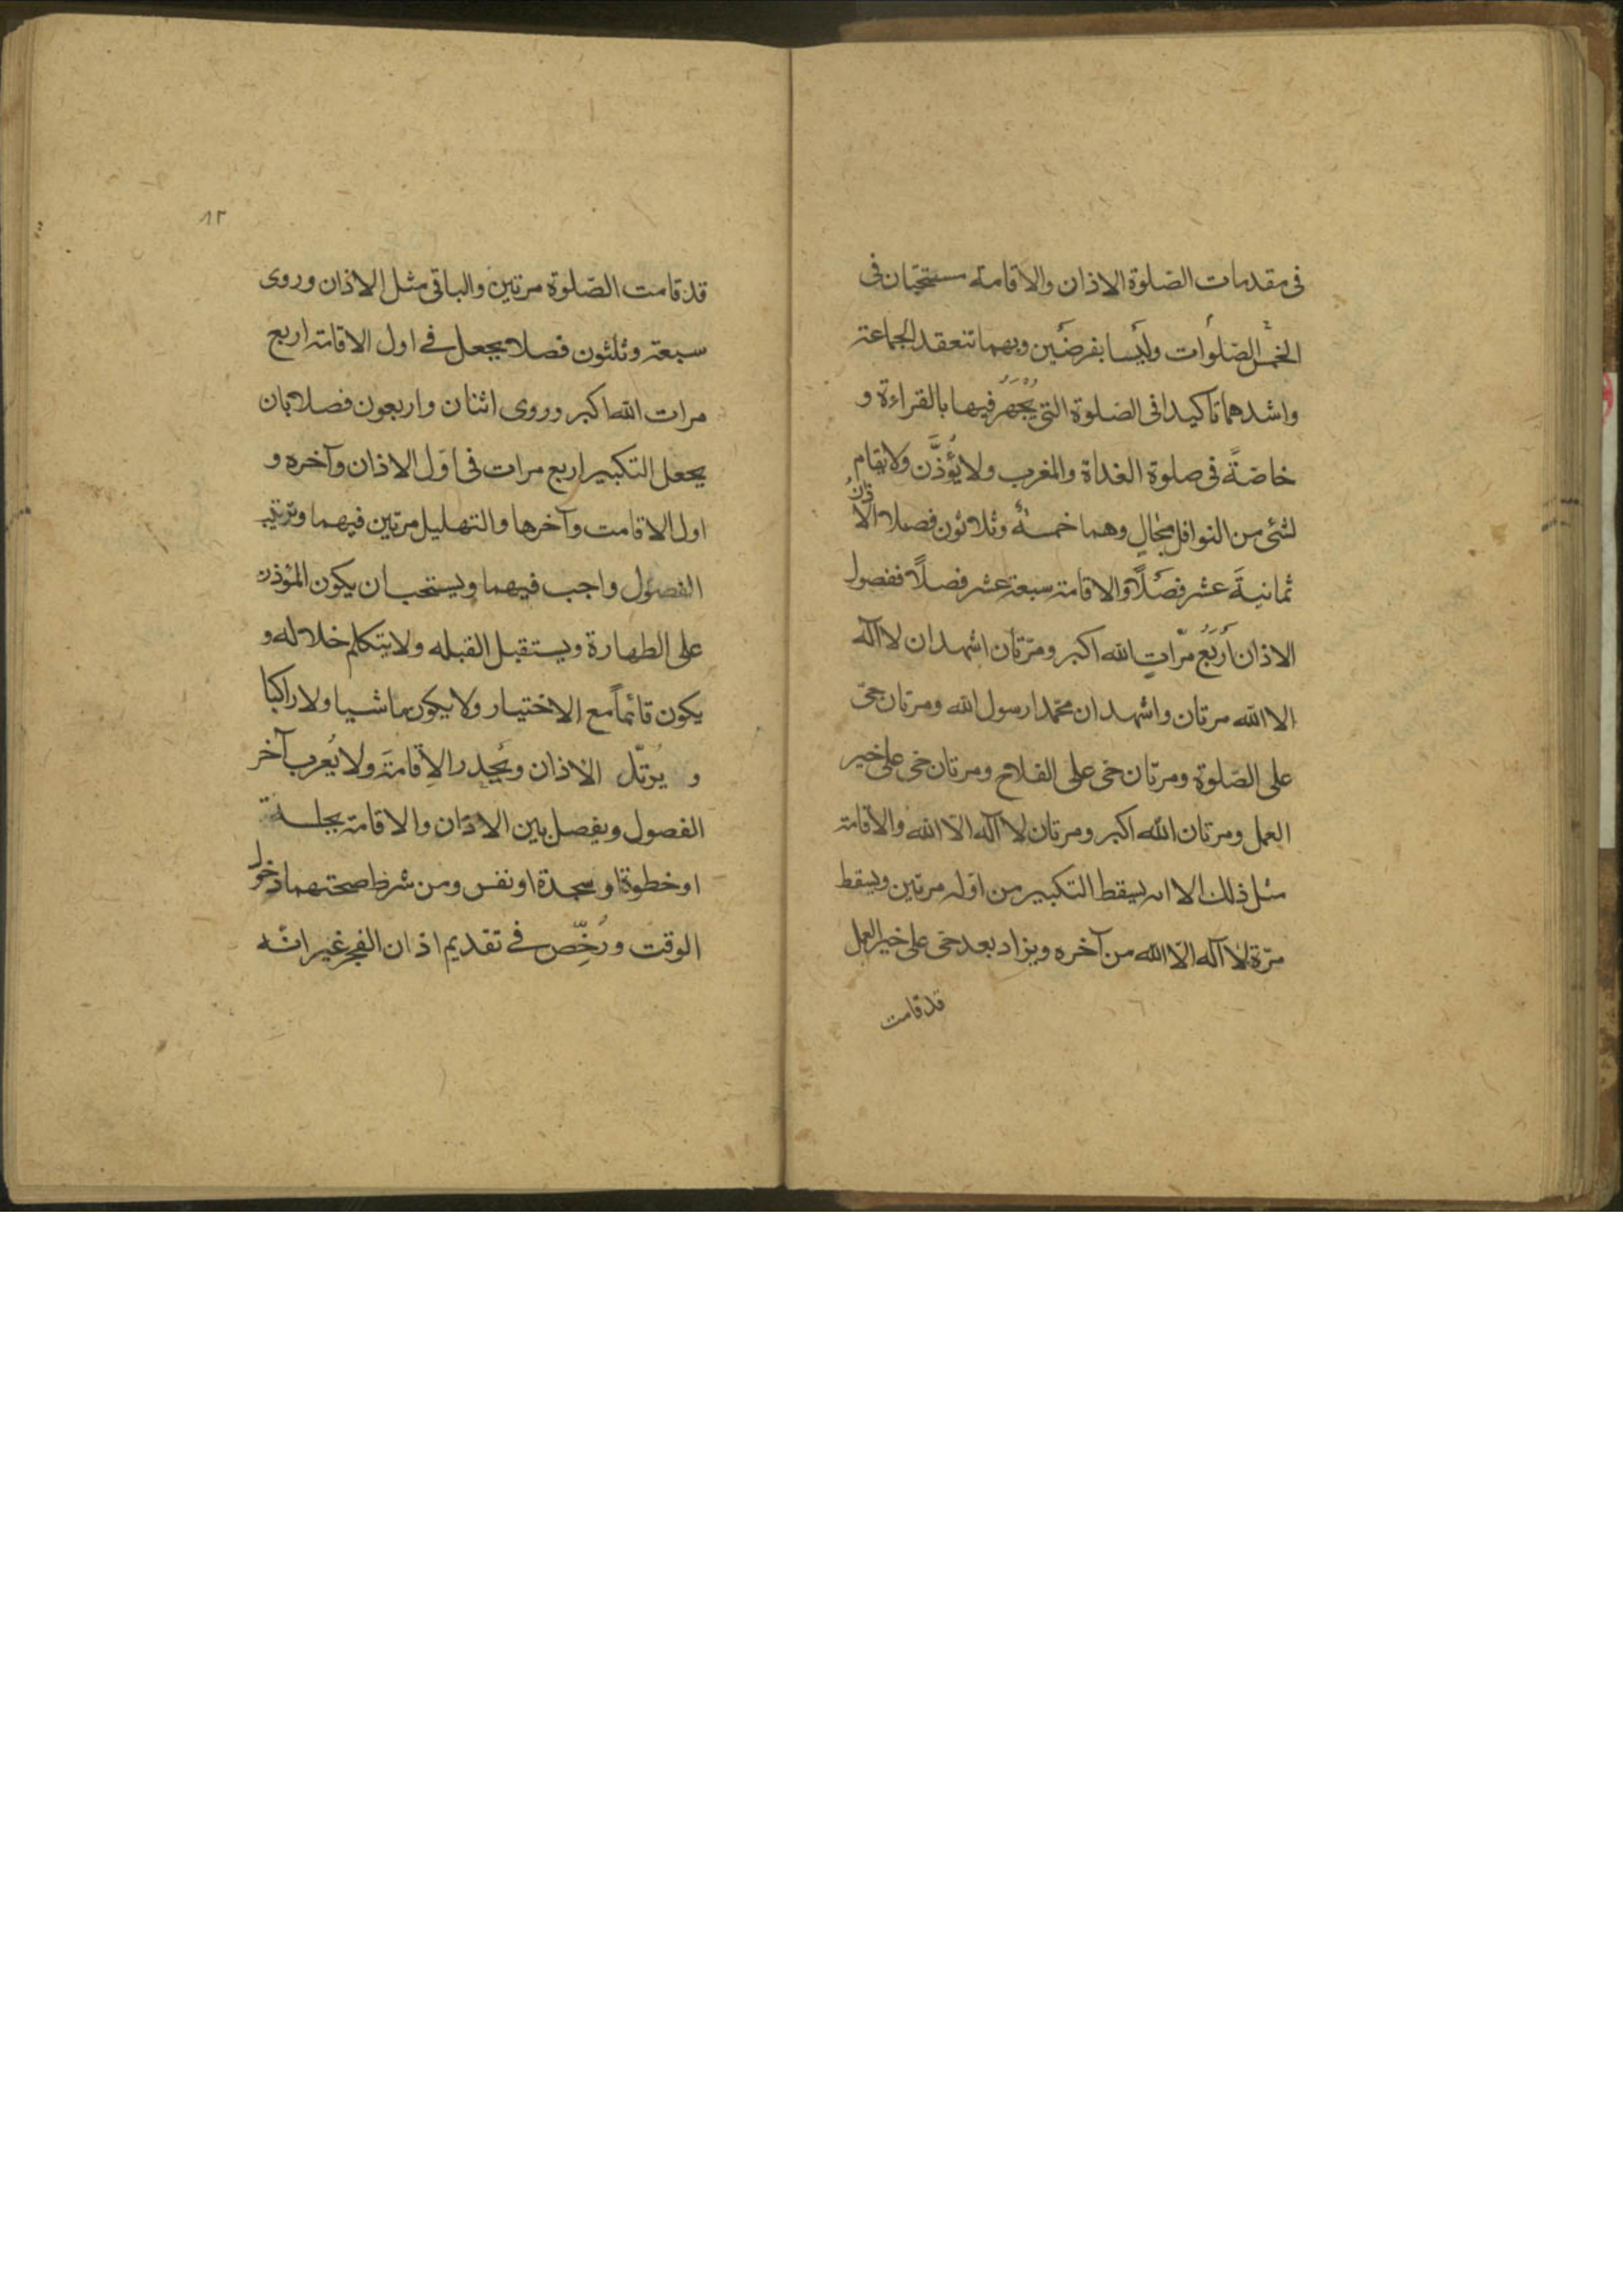 فى مقدمات الصّلوة الاذان والاقامة مستحبّان فى
الخمس الصّلوات وليسا بفرضين وبهما تنعقد الجماعة
واشدهما تأكيدا فى الصّلوة التى يُجْهَرُ فيها بالقراءة و
خاصّةً فى صلوة الغداة والمغرب ولا يُؤذَّن ولا يقام
لشئ من النوافل بحالٍ وهما خمسةٌ وثلاثون فصلا الاذان
ثمانيةَ عشر فصلاً والاقامة سبعة عشر فصلاً ففصول
الاذان أربَعُ مرّاتٍ الله اكبر ومرّتان اشهد ان لا آله
الا الله مرتان واشهد ان محمّدا رسول الله ومرتان حىّ
على الصّلوة ومرتان حىّ على الفلاح ومرتان حىّ على خير
العمل ومرتان الله اكبر ومرتان لا آله الّا الله والاقامة
مثل ذلك الا انه يسقط التكبير من اوّله مرتين ويسقط
مرّة لا آله الّا الله من آخره ويزاد بعد حىّ على خير العمل
قد قامت
١٢
قد قامت الصّلوة مرتين والباقى مثل الاذان وروى
سبعة وثلثون فصلا يجعل فى اول الاقامة اربع
مرات الله اكبر وروى اثنان واربعون فصلا بان
يجعل التكبير اربع مرات فى اوّل الاذان وآخره و
اول الاقامت وآخرها والتهليل مرتين فيهما وترتيب
الفصول واجب فيهما ويستحب ان يكون المؤذن
على الطهارة ويستقبل القبله ولا يتكلم خلاله و
يكون قائماً مع الاختيار ولا يكون ماشيا ولا راكبا
و يُرتّل الاذان ويُحدر الاقامةَ ولا يُعرب آخر
الفصول ويفصل بين الاذان والاقامة بجلسة
او خطوة او سجدة او نفس ومن شرط صحتهما دخول
الوقت ورُخِّص فى تقديم اذان الفجر غير انّه